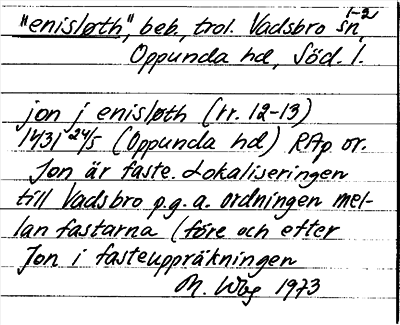 "enisløth", beb., trol. Vadsbro sn, 1-2
Oppunda hd, Söd. l.
jon j enisløth (rr. 12-13)
1431 24/5 (Oppunda hd) RAp or.
Jon är faste. Lokaliseringen
till Vadsbro p.g.a. ordningen mel-
lan fastarna (före och efter
Jon i fasteuppräkningen
M. 1973